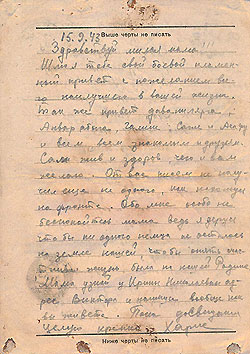 15.9.43
Выше черты не писать
Здравствуй милая мама!!!
Шлю тебе свой боевой пламен-
ный привет с пожеланием все-
го наилучшего в вашей жизни.
Так же привет
и всем всем знакомым и друзьям.
Сам жив и здоров, чего и вам
желаю. От вас писем не полу-
чил еще не одного, как нахожусь
на фронте. Обо мне особо не
беспокойтесь мама ведь я дерусь
что бы ни одного немца не осталось
на земле нашей, чтобы опять счаст-
ливая жизнь была на нашей Родине
Мама узнай у Ирины Николаевны ад-
рес Виктора и напиши вообще как
вы живете. Пока до свидания
Целую крепко
Ниже черты не писать